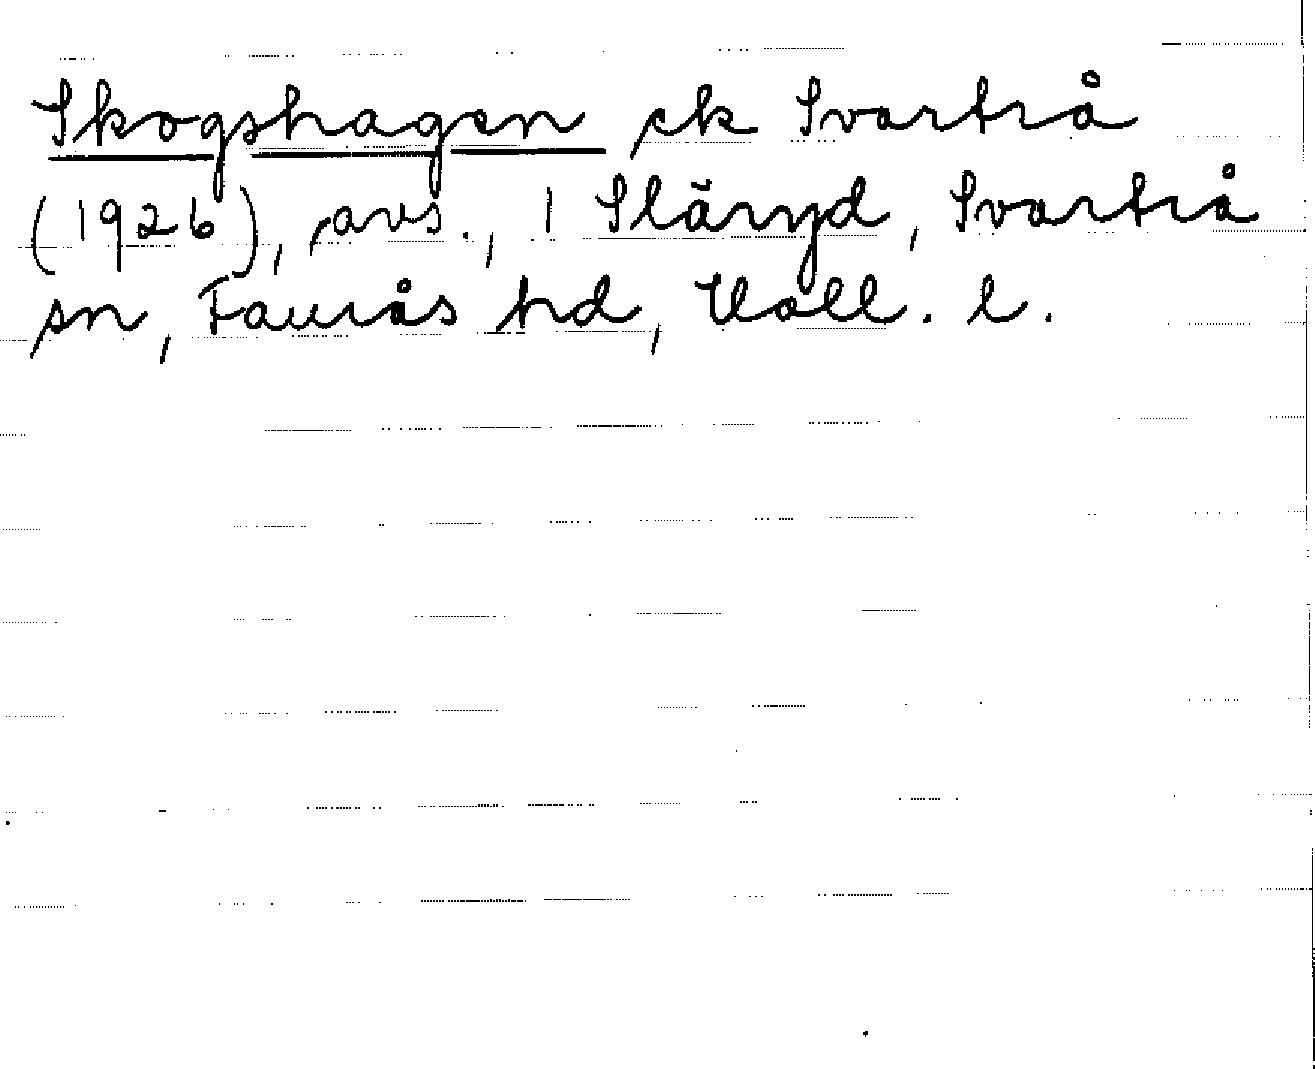 Skogshagen ek Svartrå
(1926), avs., 1 Släryd, Svartrå
sn, Faurås hd, Hall. l.